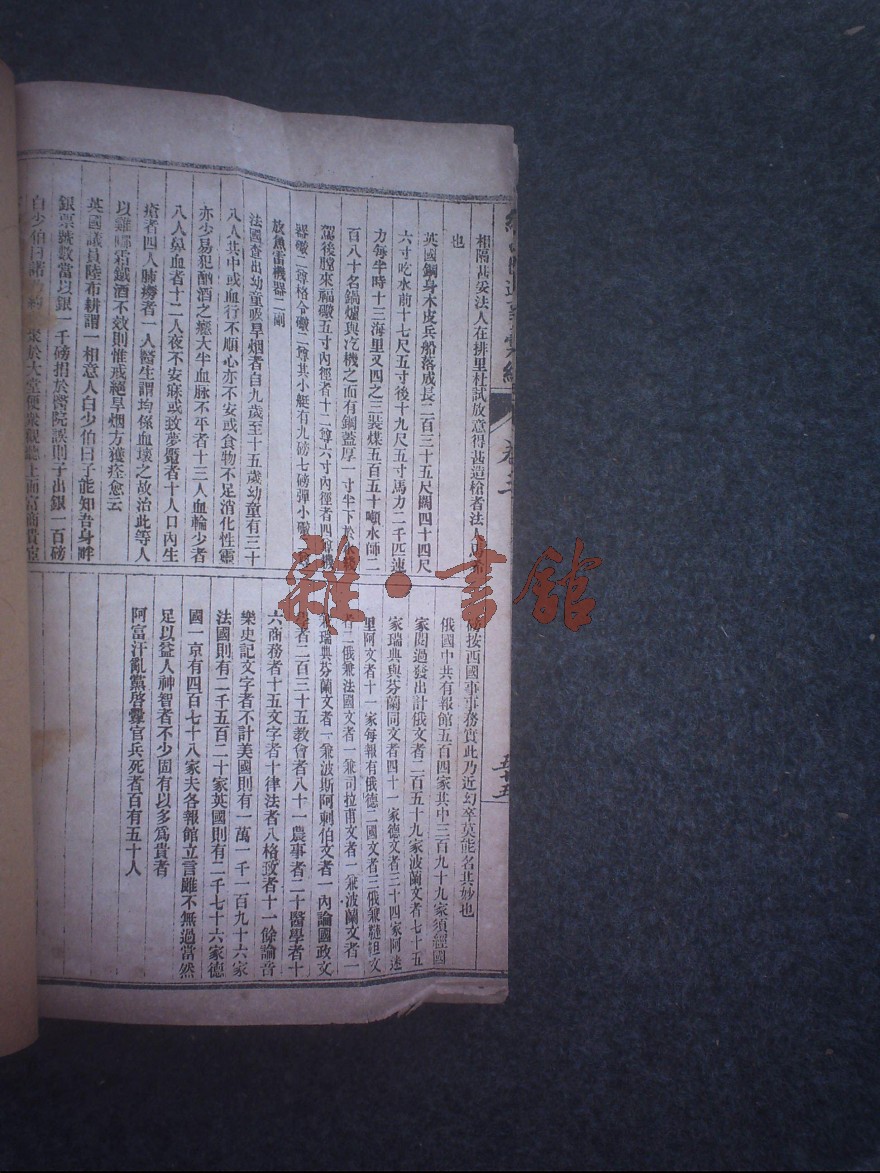 相隔甚妥法人在排里杜試放意得甚造槍者法人
也
英國鋼身木皮兵船落成長二百三十五尺闊四十四尺
六寸吃水前十七尺五寸後十九尺五寸馬力二千匹速
力每半時十三海里又四之三裝煤五百五十噸水師二
百八十名鍋爐與汽機之面有鋼蓋厚一寸半下於水
駕後膛來福礮五寸內徑者十二尊六寸內徑者四尊機
器礮二尊格令礮二尊其小艇有九磅七磅彈小礮
放魚雷機器二副
法國查出幼童吸旱烟者自九歲至十五歲幼童有三十
八人其中或血行不順心亦不安或食物不足消化性靈
亦少易犯酗酒之癮大半血脉不平者十三人血輪少者
八人鼻血者十二人夜不安寐或致夢魘者十人口內生
瘡者四人肺癆者一人醫生謂均係血壞之故治此等人
以雞哪霜鐵酒不效則惟戒絕旱烟方獲痊愈云
英國議員陸布耕謂一相意人白少伯曰子能知吾身畔
銀票號數當以銀一千磅捐於醫院誤則子出銀一百磅
白少伯曰諾 聚於大堂便衆觀聽上而富商貴宦
按西國事事務實此乃近幻卒莫能名其妙也
俄國中共有報館五百四家其中三百九十九家須經國
家閱過發出計俄文者二百五十九家波蘭文者七十五
家瑞典與芬蘭同文者四十一家德文者三十四家阿迷
里阿文者十一家每報有俄德二國文者三俄兼韃靼文
者二俄兼法國文者一兼司拉甫文者一兼波蘭文者一
兼瑞典芬蘭文者一兼波斯阿剌伯文者一內論國政文
學者二百三十五教會者八十一農事者二十醫學者十
六商務者十五文字者十律法者八格致者十一餘論音
樂史記文字者不計美國則有一萬一千一百九十六家
法國則有二千五百二十家英國則有二千七十六家德
國一京有四百七十八家夫各報館立言雖不無過當然
足以益人神智者不少固有以多爲貴者
阿富汗亂黨啓釁官兵死者百有五十人
卷三
五十五
雜·書館